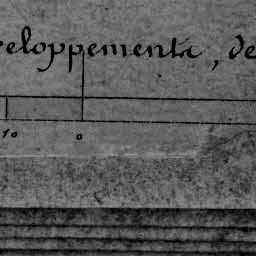 veloppements, de
10 0